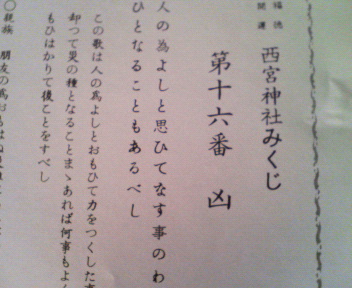 開運 福徳
西宮神社みくじ
第十六番 凶
人の為よしと思ひてなす事のわ
ひとなることもあるべし
この歌は人の爲よしとおもひて力をつくした事
却つて災の種となることまゝあれば何事もよく
もひはかりて後ことをすべし
〇親族 朋友の爲おもはぬ